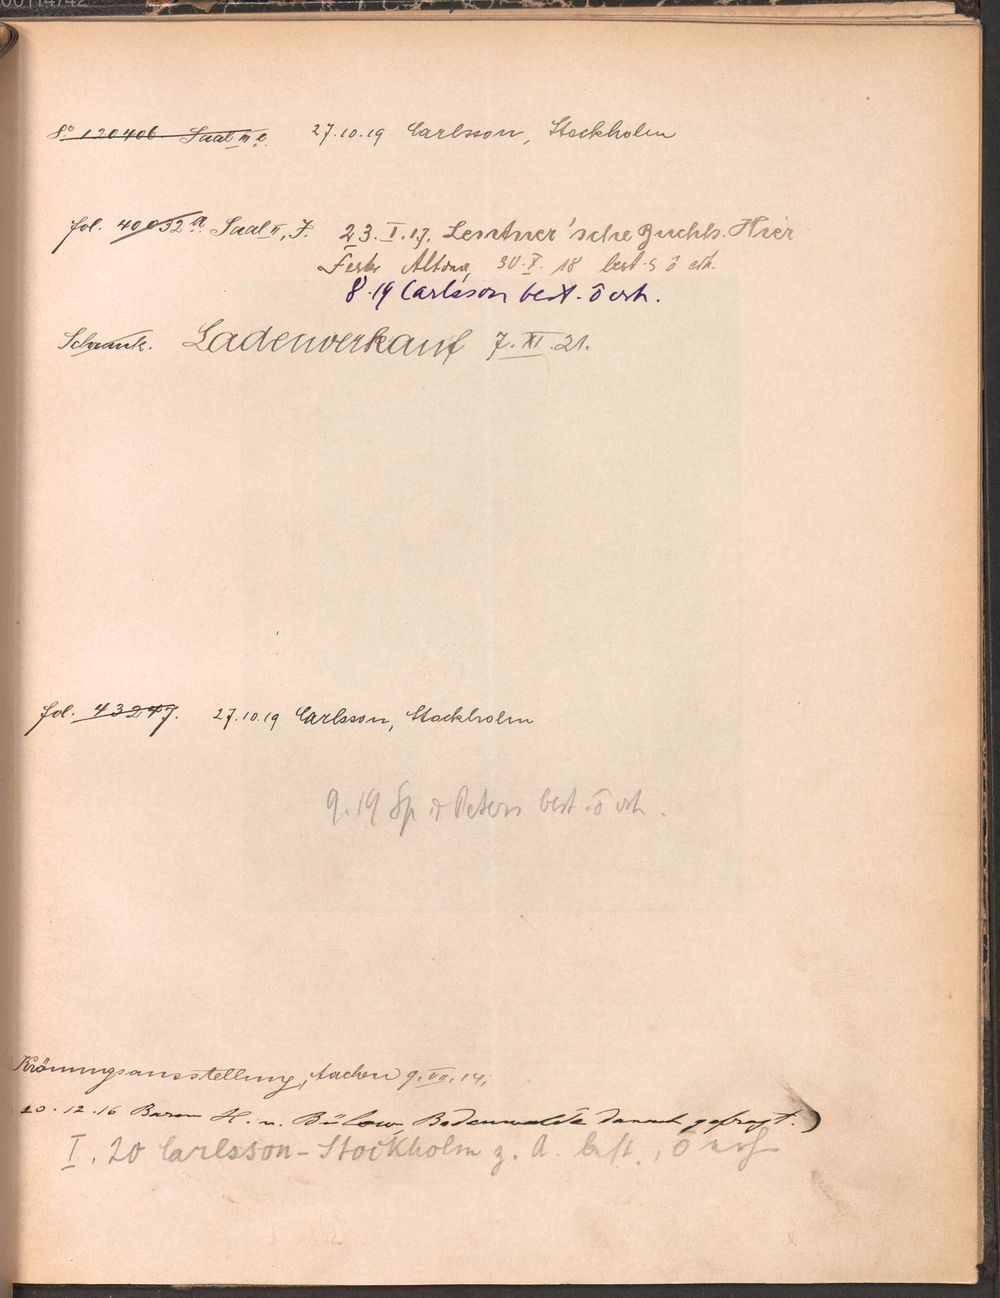 8° 120406 Saal III e. 27.10.19 Carlsson, Stockholm
fol. 40052a. Saal II, F. 23.I.17. Lentner'sche Buchh. Hier
Altona, 30.X.18 best. ō erh.
8.19 Carlsson best. ō erh.
Schrank. Ladenverkauf 7.XI.21.
fol. 43247. 27.10.19 Carlsson, Stockholm
9.19 Sp & Peters best. ō erh.
Krönungsausstellung, Aachen 9.VII.14.
20.12.16 Baron H. v. Bülow, Bodenwalde danach gefragt.)
I.20 Carlsson-Stockholm z. A. best., ō erh